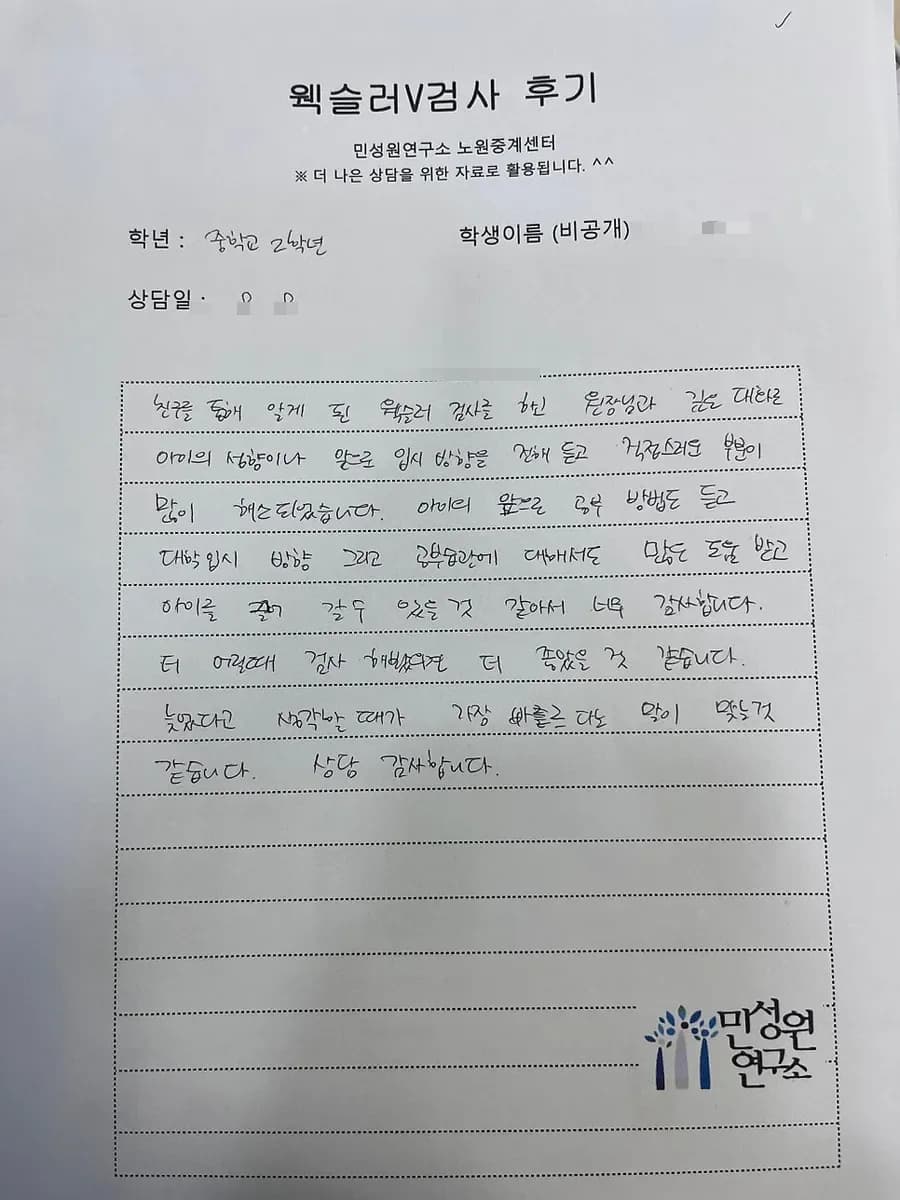 웩슬러V검사 후기
민성원연구소 노원중계센터
※ 더 나은 상담을 위한 자료로 활용됩니다. ^^
학년 : 중학교 2학년
학생이름 (비공개)
상담일
친구를 통해 알게 된 웩슬러 검사를 하신 원장님과 깊은 대화로
아이의 성향이나 앞으로 입시 방향을 전해 듣고 걱정스러운 부분이
많이 해소되었습니다. 아이의 앞으로 공부 방법도 듣고
대학입시 방향 그리고 공부습관에 대해서도 많은 도움 받고
아이를 갈 수 있을 것 같아서 너무 감사합니다.
더 어릴때 검사 해봤으면 더 좋았을 것 같습니다.
늦었다고 생각할 때가 가장 빠르다는 말이 맞는것
같습니다. 상담 감사합니다.
민성원
연구소